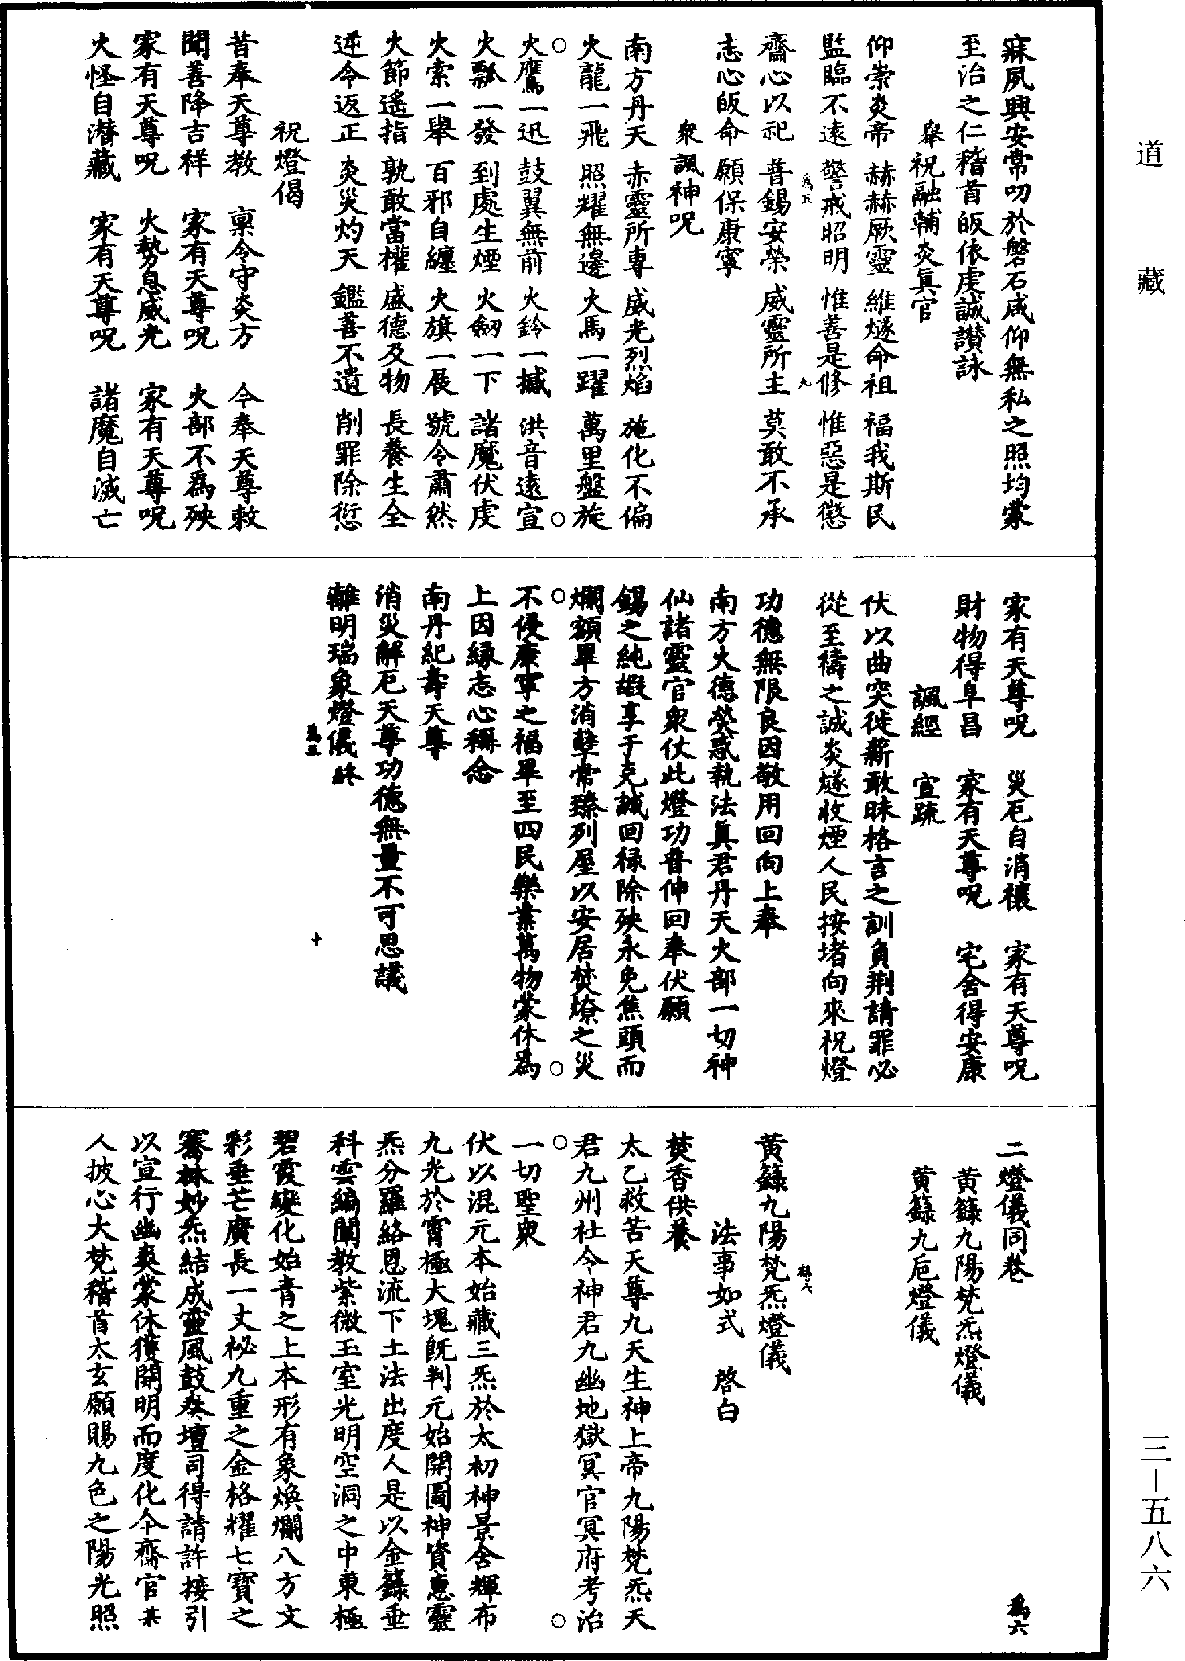 道藏
三—五八六
寐夙興安常叨於磐石咸仰無私之照均蒙
至治之仁稽首皈依虔誠讃詠
舉祝融輔炎眞官
仰崇炎帝 赫赫厥靈 維燧命祖 福我斯民
監臨不遠 警戒昭明 惟善是修 惟惡是懲
爲五 九
齋心以祀 普錫安榮 威靈所主 莫敢不承
志心皈命 願保康寧
衆諷神呪
南方丹天 赤靈所專 威光烈焰 施化不偏
火龍一飛 照耀無邊 火馬一躍 萬里盤旋
火鷹一迅 鼓翼無前 火鈴一撼 洪音遠宣
火瓢一發 到處生煙 火劒一下 諸魔伏虔
火索一舉 百邪自纏 火旗一展 號令肅然
火節遙指 孰敢當權 盛德及物 長養生全
逆令返正 炎災灼天 鑑善不遺 削罪除愆
祝燈偈
昔奉天尊教 稟令守炎方 今奉天尊敕
聞善降吉祥 家有天尊呪 火部不爲殃
家有天尊呪 火勢息威光 家有天尊呪
火怪自潛藏 家有天尊呪 諸魔自滅亡
家有天尊呪 災厄自消禳 家有天尊呪
財物得阜昌 家有天尊呪 宅舍得安康
諷經 宣疏
伏以曲突徙薪敢昧格言之訓負荆請罪必
從至禱之誠炎燧收煙人民按堵向來祝燈
功德無限良因敬用回向上奉
南方火德熒惑執法眞君丹天火部一切神
仙諸靈官衆仗此燈功普伸回奉伏願
錫之純嘏享于克誠回祿除殃永免焦頭而
爛額畢方消孽常臻列屋以安居焚燎之災
不侵康寧之福畢至四民樂業萬物蒙休爲
上因緣志心稱念
南丹紀壽天尊
消災解厄天尊功德無量不可思議
離明瑞象燈儀終
爲五 十
二燈儀同卷
爲六
黄籙九陽梵炁燈儀
黄籙九巵燈儀
黄籙九陽梵炁燈儀
法事如式 啓白
焚香供養
太乙救苦天尊九天生神上帝九陽梵炁天
君九州社令神君九幽地獄冥官冥府考治
一切聖衆
伏以混元本始藏三炁於太初神景含輝布
九光於霄極大塊旣判元始開圖神資惠靈
炁分羅絡恩流下土法出度人是以金籙垂
科雲編闡教紫微玉室光明空洞之中東極
碧霞變化始青之上本形有象煥爛八方文
彩垂芒廣長一丈祕九重之金格耀七寶之
騫林妙炁結成靈風鼓奏壇司得請許接引
以宣行幽爽蒙休獲開明而度化今齋官某
人披心大梵稽首太玄願賜九色之陽光照